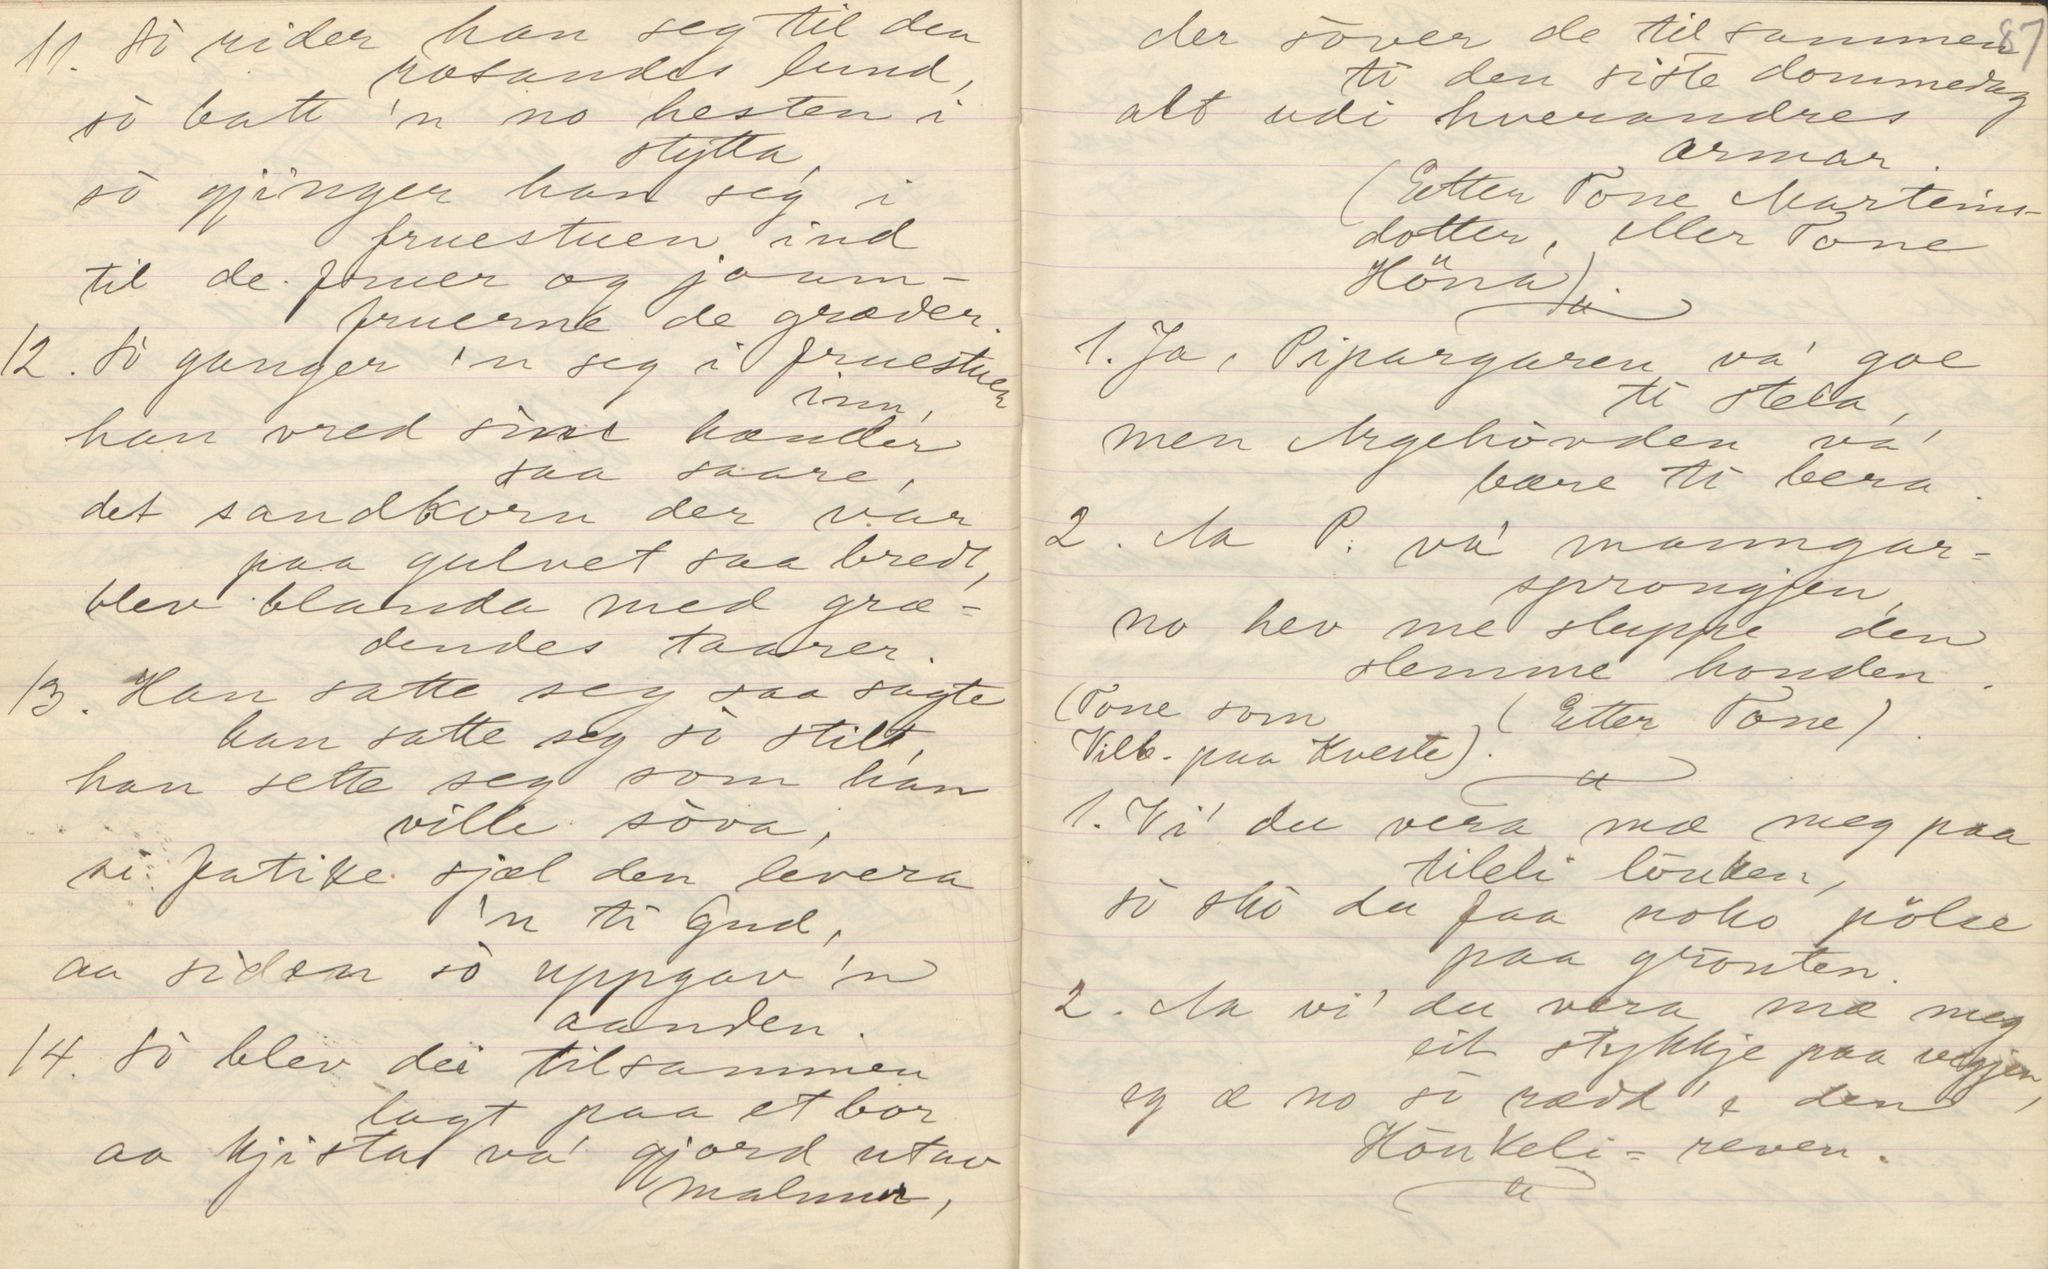 11. Sò rider han seg til den
rosandes lund,
sò batt 'n no hesten i
stytta,
sò gjinger han seg i
fruestuen ind
til de fruer og joum-
fruerne de græder.
12. Sò ganger 'n seg i fruestuen
inn,
han vred sine hænder
saa saare,
det sandkorn der var
paa gulvet saa bredt,
blev blanda med græ-
dendes taarer.
13. Han satte seg saa sagte
han satte seg sò stilt,
han sette seg som han
ville sòva,
si fatike sjæl den levera
'n ti Gud,
aa sidan sò uppgav 'n
aanden.
14. Sò blev dei tilsammen
lagt paa et bor
aa kjista va' gjord utav
malmer,
87
der sòver de tilsammen
ti den siste dommedag
alt udi hverandres
armar.
(Etter Tone Marteins-
dotter, eller Tone
Hönà).
1. Ja, Pipargaren va' goe
ti stela,
men Argehòvden va'
bære ti bera.
2. Aa P. va' manngar-
sprongjen,
no hev me sluppe den
slemme honden.
(Tone som
Vilb. paa Kveste).
(Etter Tone).
1. Vi' du vera mæ meg paa
tileli lönken,
sò skò du faa noko pölse
paa grönten.
2. Aa vi' du vera mæ meg
eit stykkje paa vegjen,
eg æ no sò rædd' e den
Hönkeli-reven.